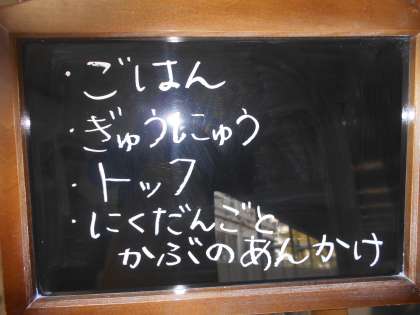 ・ごはん
・ぎゅうにゅう
・トック
・にくだんごと
かぶのあんかけ